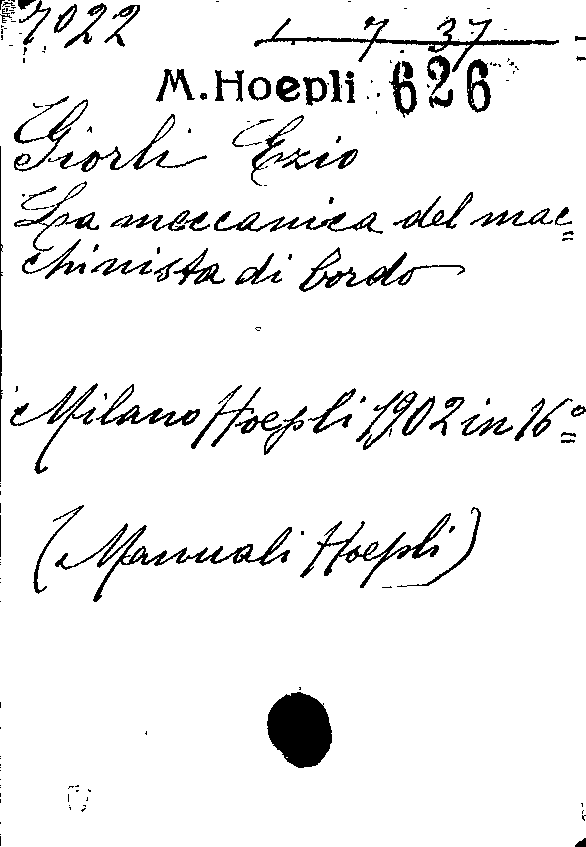 7022 1. 7 37
M. Hoepli 626
Giorli Ezio
La meccanica del mac=
chinista di bordo
Milano Hoepli 1902 in 16°
(Manuali Hoepli)